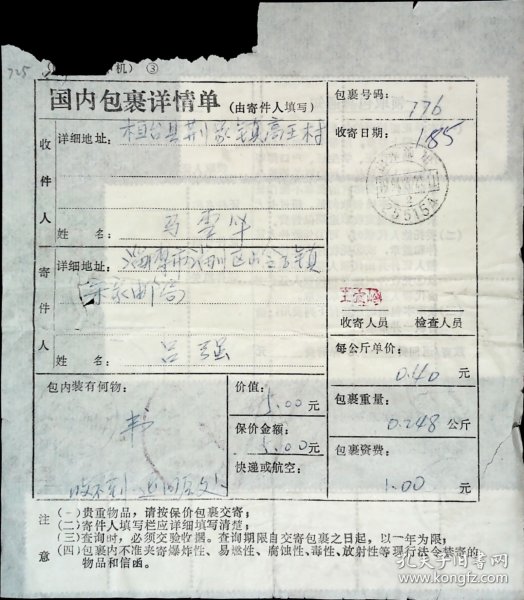 725
机) ③
国内包裹详情单 (由寄件人填写)
收件人
详细地址: 桓台县荆家镇高王村
姓名: 马雪华
寄件人
详细地址: 淄博市淄川区
姓名: 吕强
包裹号码: 776
收寄日期: 185
255154
收寄人员 检查人员
每公斤单价:
0.40 元
包裹重量:
0.248 公斤
包裹资费:
1.00 元
包内装有何物:
书
价值:
5.00 元
保价金额:
5.00 元
快递或航空:
注意
(一) 贵重物品,请按保价包裹交寄;
(二) 寄件人填写栏应详细填写清楚;
(三) 查询时,必须交验收据。查询期限自交寄包裹之日起,以一年为限;
(四) 包裹内不准夹寄爆炸性、易燃性、腐蚀性、毒性、放射性等现行法令禁寄的
物品和信函。
孔夫子旧书网
www.kongfz.com